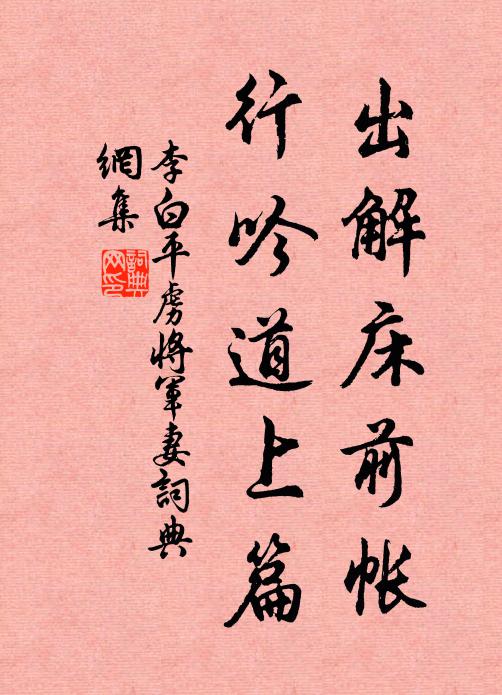 出解床前帐
行吟道上篇
李白平虏將軍妻詞典
網集
詞典
网印